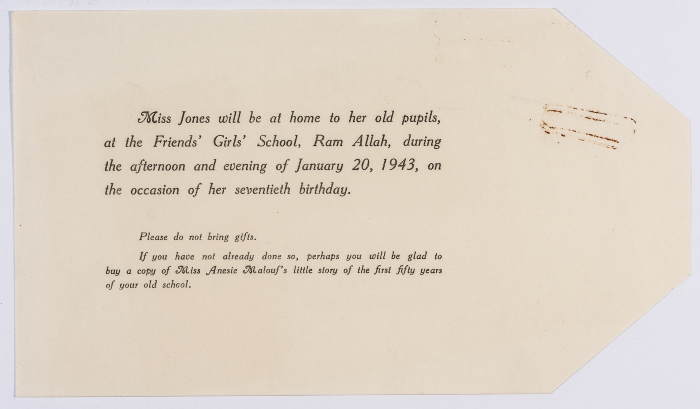 Miss Jones will be at home to her old pupils,
at the Friends' Girls' School, Ram Allah, during
the afternoon and evening of January 20, 1943, on
the occasion of her seventieth birthday.
Please do not bring gifts.
If you have not already done so, perhaps you will be glad to
buy a copy of Miss Anesie Malouf's little story of the first fifty years
of your old school.